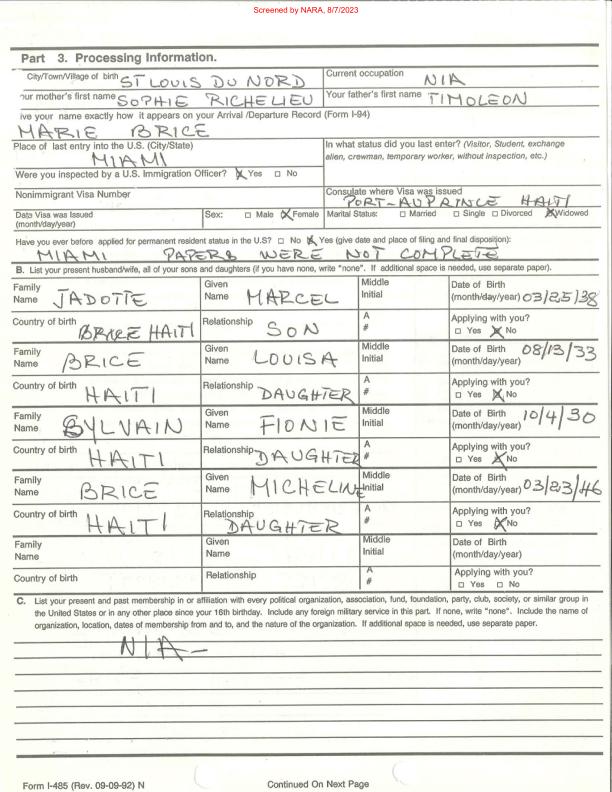 Screened by NARA, 8/7/2023
Part 3. Processing Information.
City/Town/Village of birth ST LOUIS DU NORD Current occupation N/A
our mother's first name SOPHIE RICHELIEU Your father's first name TIMOLEON
ive your name exactly how it appears on your Arrival /Departure Record (Form I-94)
MARIE BRICE
Place of last entry into the U.S. (City/State) In what status did you last enter? (Visitor, Student, exchange
MIAMI alien, crewman, temporary worker, without inspection, etc.)
Were you inspected by a U.S. Immigration Officer? ☒ Yes ☐ No
Nonimmigrant Visa Number Consulate where Visa was issued
PORT-AUPRINCE HAITI
Date Visa was Issued Sex: ☐ Male ☒ Female Marital Status: ☐ Married ☐ Single ☐ Divorced ☒ Widowed
(month/day/year)
Have you ever before applied for permanent resident status in the U.S.? ☐ No ☒ Yes (give date and place of filing and final disposition):
MIAMI PAPERS WERE NOT COMPLETE
B. List your present husband/wife, all of your sons and daughters (if you have none, write "none". If additional space is needed, use separate paper).
Family Given Middle Date of Birth
Name JADOTTE Name MARCEL Initial (month/day/year) 03/25/38
Country of birth BRICE HAITI Relationship SON A # Applying with you?
☐ Yes ☒ No
Family Given Middle Date of Birth 08/13/33
Name BRICE Name LOUISA Initial (month/day/year)
Country of birth HAITI Relationship DAUGHTER A # Applying with you?
☐ Yes ☒ No
Family Given Middle Date of Birth 10/4/30
Name SYLVAIN Name FIONIE Initial (month/day/year)
Country of birth HAITI Relationship DAUGHTER A # Applying with you?
☐ Yes ☒ No
Family Given Middle Date of Birth
Name BRICE Name MICHELINE Initial (month/day/year) 03/23/46
Country of birth HAITI Relationship DAUGHTER A # Applying with you?
☐ Yes ☒ No
Family Given Middle Date of Birth
Name Name Initial (month/day/year)
Country of birth Relationship A # Applying with you?
☐ Yes ☐ No
C. List your present and past membership in or affiliation with every political organization, association, fund, foundation, party, club, society, or similar group in
the United States or in any other place since your 16th birthday. Include any foreign military service in this part. If none, write "none". Include the name of
organization, location, dates of membership from and to, and the nature of the organization. If additional space is needed, use separate paper.
N/A-
Form I-485 (Rev. 09-09-92) N Continued On Next Page